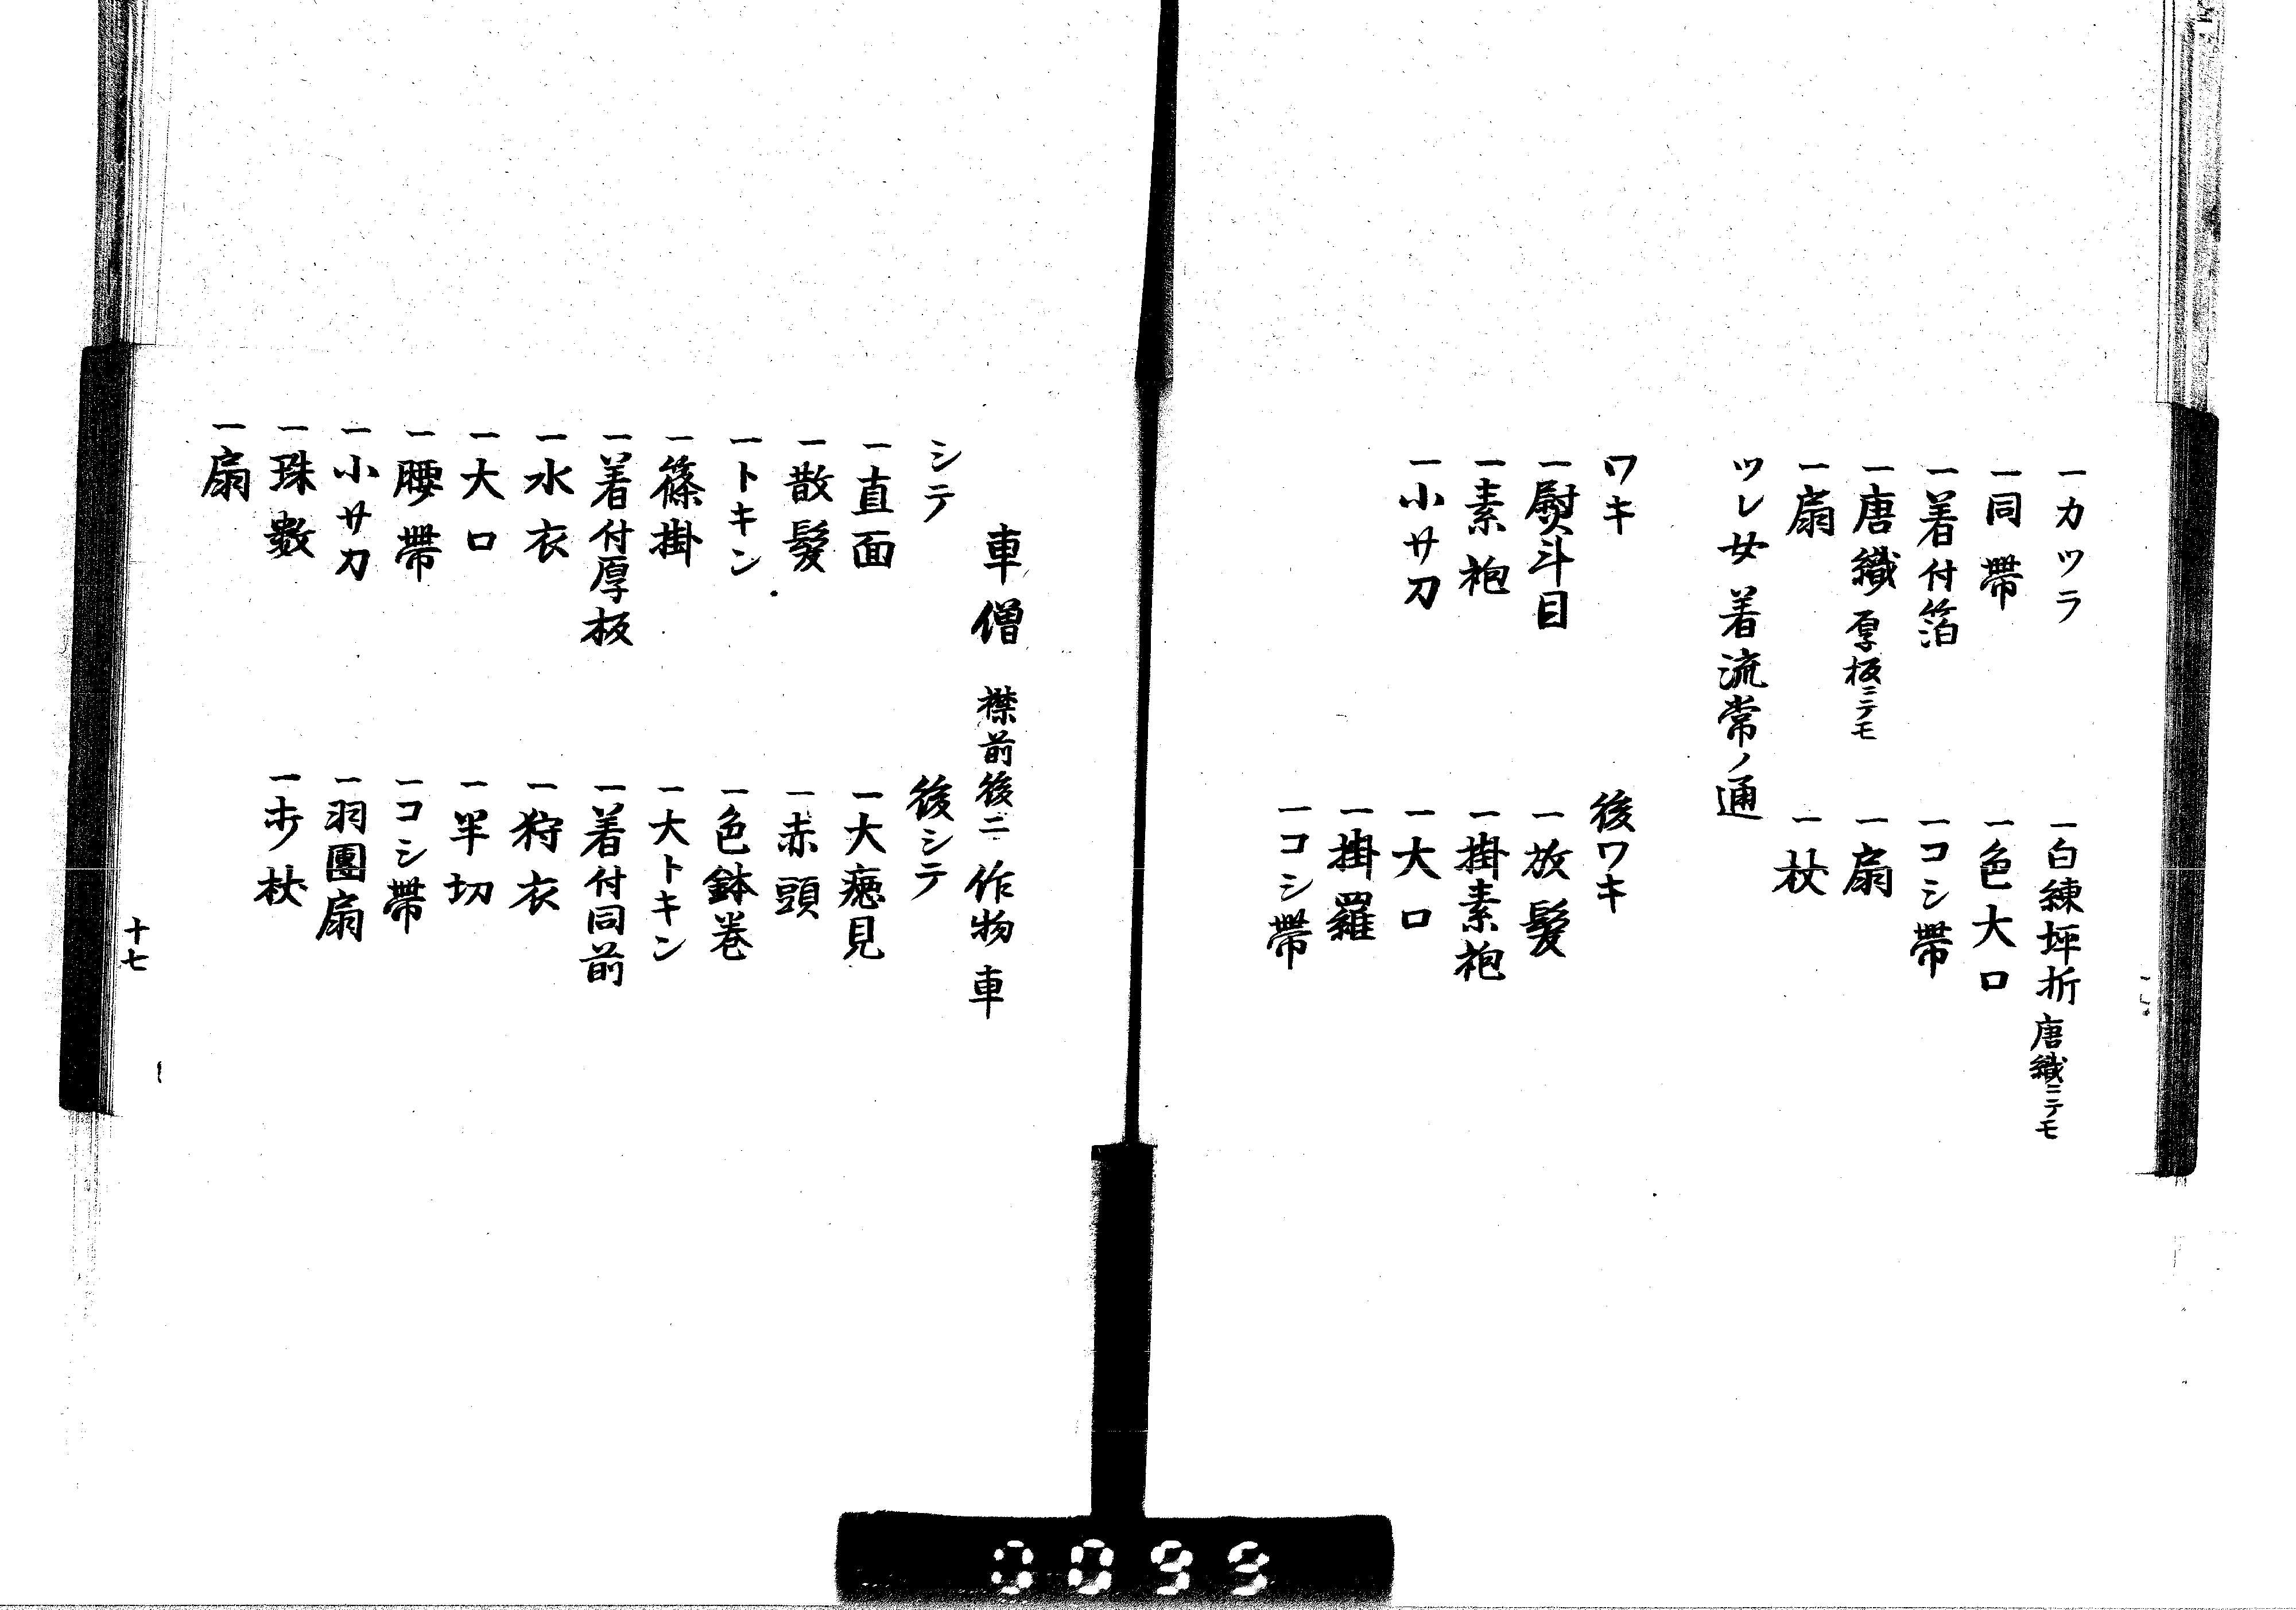 一カツラ
一同帯
一着付箔
一唐織 厚板ニテモ
一扇
一白練坪折 唐織ニテモ
一色大口
一コシ帯
一扇
一杖
ツレ女 着流常ノ通
ワキ
一熨斗目
一素袍
一小サ刀
後ワキ
一放髪
一掛素袍
一大口
一掛羅
一コシ帯
車僧 襟前後二 作物車
シテ
一直面
一散髪
一トキン
一篠掛
一着付厚板
一水衣
一大口
一腰帯
一小サ刀
一珠數
一扇
後シテ
一大癋見
一赤頭
一色鉢巻
一大トキン
一着付同前
一狩衣
一半切
一コシ帯
一羽團扇
杖
十七